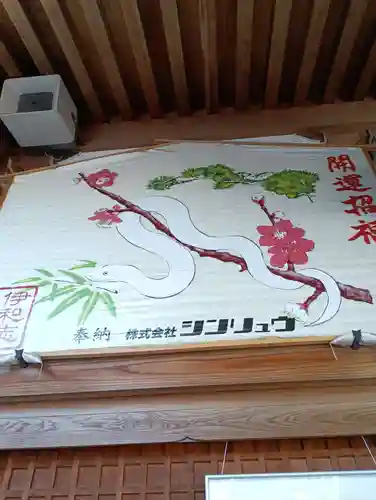 開運招福
伊和志
奉納 株式会社 シンリュウ